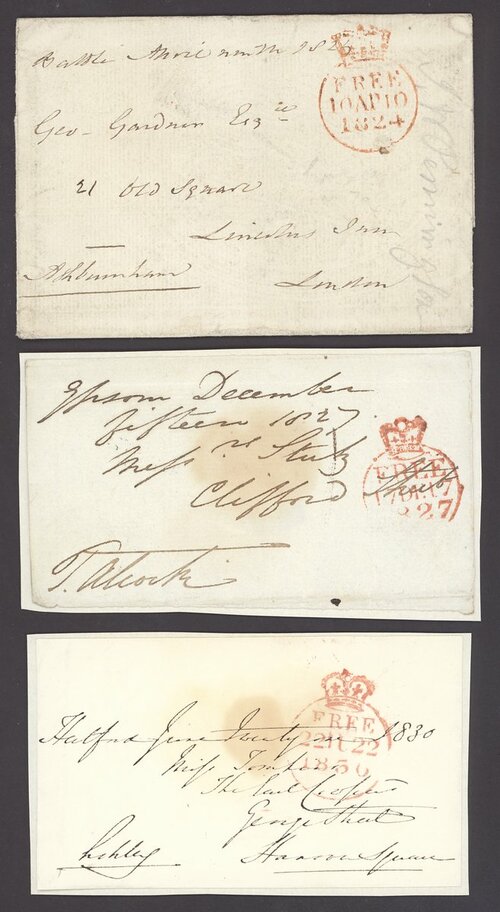 Battle April ninth 182
FREE
10AP10
1824
Geo Gardner Esqre
21 Old Square
Lincolns Inn
London
Ashburnham
Epsom December
fifteen 1827
Messrs Stultz
Clifford Street
FREE
1827
T. Alcock
FREE
22JU22
1830
Hatford June Twenty 1830
Miss
The Earl Cowper
George Street
Hanover Square
Ashley